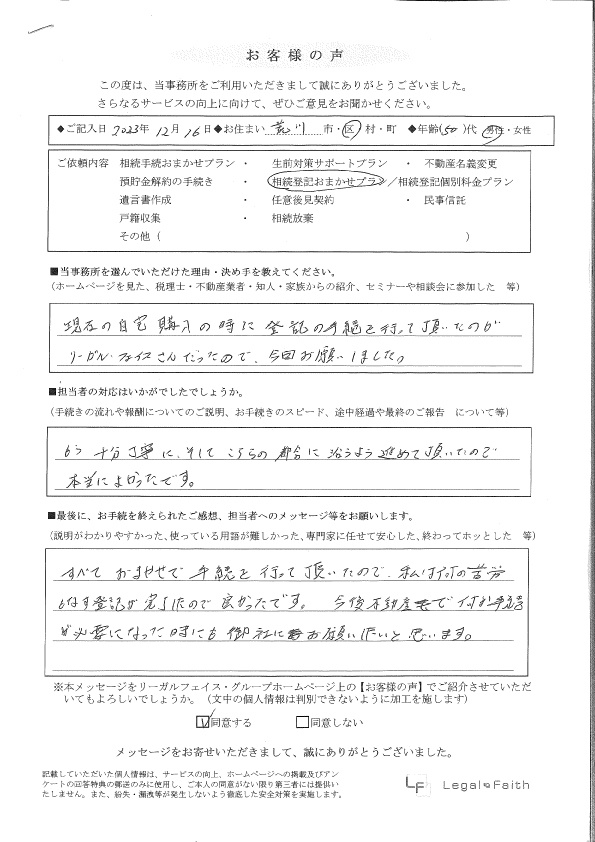 お客様の声
この度は、当事務所をご利用いただきまして誠にありがとうございました。
さらなるサービスの向上に向けて、ぜひご意見をお聞かせください。
◆ご記入日 2023年 12月 16日 ◆お住まい 荒川 市・区・村・町 ◆年齢(50)代 男性・女性
ご依頼内容 相続手続おまかせプラン ・ 生前対策サポートプラン ・ 不動産名義変更
預貯金解約の手続き ・ 相続登記おまかせプラン/相続登記個別料金プラン
遺言書作成 ・ 任意後見契約 ・ 民事信託
戸籍収集 ・ 相続放棄
その他( )
■当事務所を選んでいただけた理由・決め手を教えてください。
(ホームページを見た、税理士・不動産業者・知人・家族からの紹介、セミナーや相談会に参加した 等)
現在の自宅購入の時に登記の手続を行って頂いたのが
リーガルフェイスさんだったので、今回お願いしました。
■担当者の対応はいかがでしたでしょうか。
(手続きの流れや報酬についてのご説明、お手続きのスピード、途中経過や最終のご報告 について等)
十分丁寧に、そしてこちらの都合に沿うよう進めて頂いたので
本当によかったです。
■最後に、お手続を終えられたご感想、担当者へのメッセージ等をお願いします。
(説明がわかりやすかった、使っている用語が難しかった、専門家に任せて安心した、終わってホッとした 等)
すべておまかせで手続を行って頂いたので、私は何の苦労
もなす登記が完了したので良かったです。 今後不動産で何か手続
が必要になった時にも御社にお願いしたいと思います。
※本メッセージをリーガルフェイス・グループホームページ上の【お客様の声】でご紹介させていただ
いてもよろしいでしょうか。(文中の個人情報は判別できないように加工を施します)
☑同意する □同意しない
メッセージをお寄せいただきまして、誠にありがとうございました。
記載していただいた個人情報は、サービスの向上、ホームページへの掲載及びアン
ケートの回答特典の郵送のみに使用し、ご本人の同意がない限り第三者には提供い
たしません。また、紛失・漏洩等が発生しないよう徹底した安全対策を実施します。
LF Legal Faith